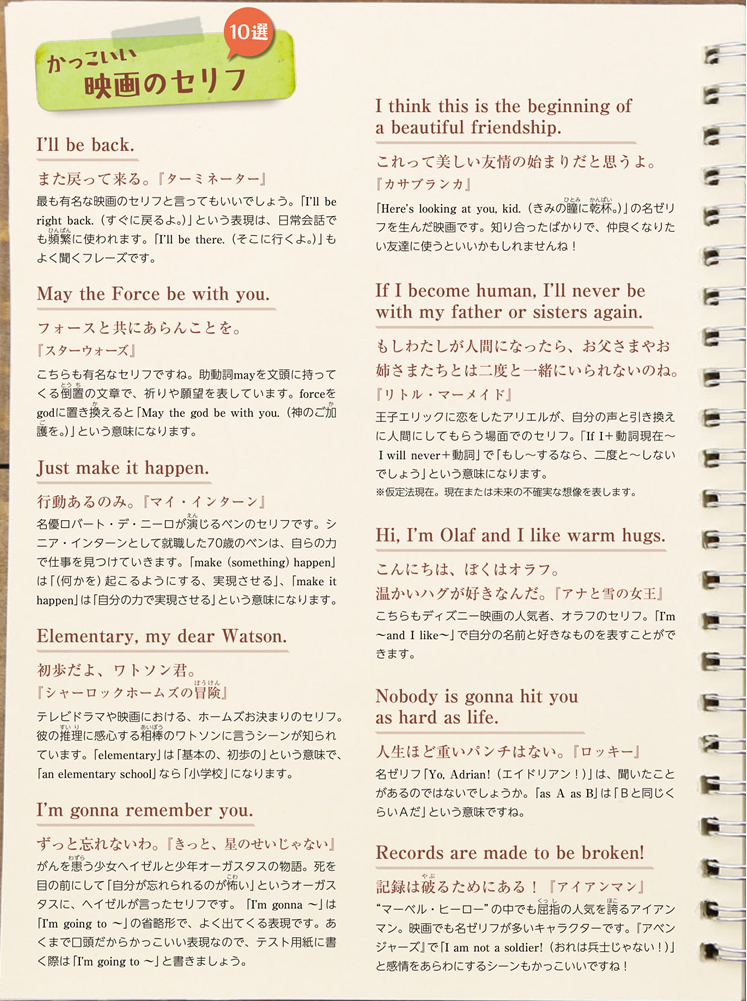 かっこいい
映画のセリフ
10選
I'll be back.
また戻って来る。『ターミネーター』
最も有名な映画のセリフと言ってもいいでしょう。「I'll be
right back.（すぐに戻るよ。）」という表現は、日常会話で
も頻繁に使われます。「I'll be there.（そこに行くよ。）」も
よく聞くフレーズです。
May the Force be with you.
フォースと共にあらんことを。
『スターウォーズ』
こちらも有名なセリフですね。助動詞mayを文頭に持って
くる倒置の文章で、祈りや願望を表しています。forceを
godに置き換えると「May the god be with you.（神のご加
護を。）」という意味になります。
Just make it happen.
行動あるのみ。『マイ・インターン』
名優ロバート・デ・ニーロが演じるベンのセリフです。シ
ニア・インターンとして就職した70歳のベンは、自らの力
で仕事を見つけていきます。「make (something) happen」
は「（何かを）起こるようにする、実現させる」、「make it
happen」は「自分の力で実現させる」という意味になります。
Elementary, my dear Watson.
初歩だよ、ワトソン君。
『シャーロックホームズの冒険』
テレビドラマや映画における、ホームズお決まりのセリフ。
彼の推理に感心する相棒のワトソンに言うシーンが知られ
ています。「elementary」は「基本の、初歩の」という意味で、
「an elementary school」なら「小学校」になります。
I'm gonna remember you.
ずっと忘れないわ。『きっと、星のせいじゃない』
がんを患う少女ヘイゼルと少年オーガスタスの物語。死を
目の前にして「自分が忘れられるのが怖い」というオーガス
タスに、ヘイゼルが言ったセリフです。「I'm gonna ～」は
「I'm going to ～」の省略形で、よく出てくる表現です。あ
くまで口頭だからかっこいい表現なので、テスト用紙に書
く際は「I'm going to ～」と書きましょう。
I think this is the beginning of
a beautiful friendship.
これって美しい友情の始まりだと思うよ。
『カサブランカ』
「Here's looking at you, kid.（きみの瞳に乾杯。）」の名ゼリ
フを生んだ映画です。知り合ったばかりで、仲良くなりた
い友達に使うといいかもしれませんね！
If I become human, I'll never be
with my father or sisters again.
もしわたしが人間になったら、お父さまやお
姉さまたちとは二度と一緒にいられないのね。
『リトル・マーメイド』
王子エリックに恋をしたアリエルが、自分の声と引き換え
に人間にしてもらう場面でのセリフ。「If I＋動詞現在～
I will never＋動詞」で「もし～するなら、二度と～しない
でしょう」という意味になります。
※仮定法現在。現在または未来の不確実な想像を表します。
Hi, I'm Olaf and I like warm hugs.
こんにちは、ぼくはオラフ。
温かいハグが好きなんだ。『アナと雪の女王』
こちらもディズニー映画の人気者、オラフのセリフ。「I'm
～and I like～」で自分の名前と好きなものを表すことがで
きます。
Nobody is gonna hit you
as hard as life.
人生ほど重いパンチはない。『ロッキー』
名ゼリフ「Yo, Adrian!（エイドリアン！）」は、聞いたこと
があるのではないでしょうか。「as A as B」は「Ｂと同じく
らいＡだ」という意味ですね。
Records are made to be broken!
記録は破るためにある！『アイアンマン』
“マーベル・ヒーロー”の中でも屈指の人気を誇るアイアン
マン。映画でも名ゼリフが多いキャラクターです。『アベン
ジャーズ』で「I am not a soldier!（おれは兵士じゃない！）」
と感情をあらわにするシーンもかっこいいですね！